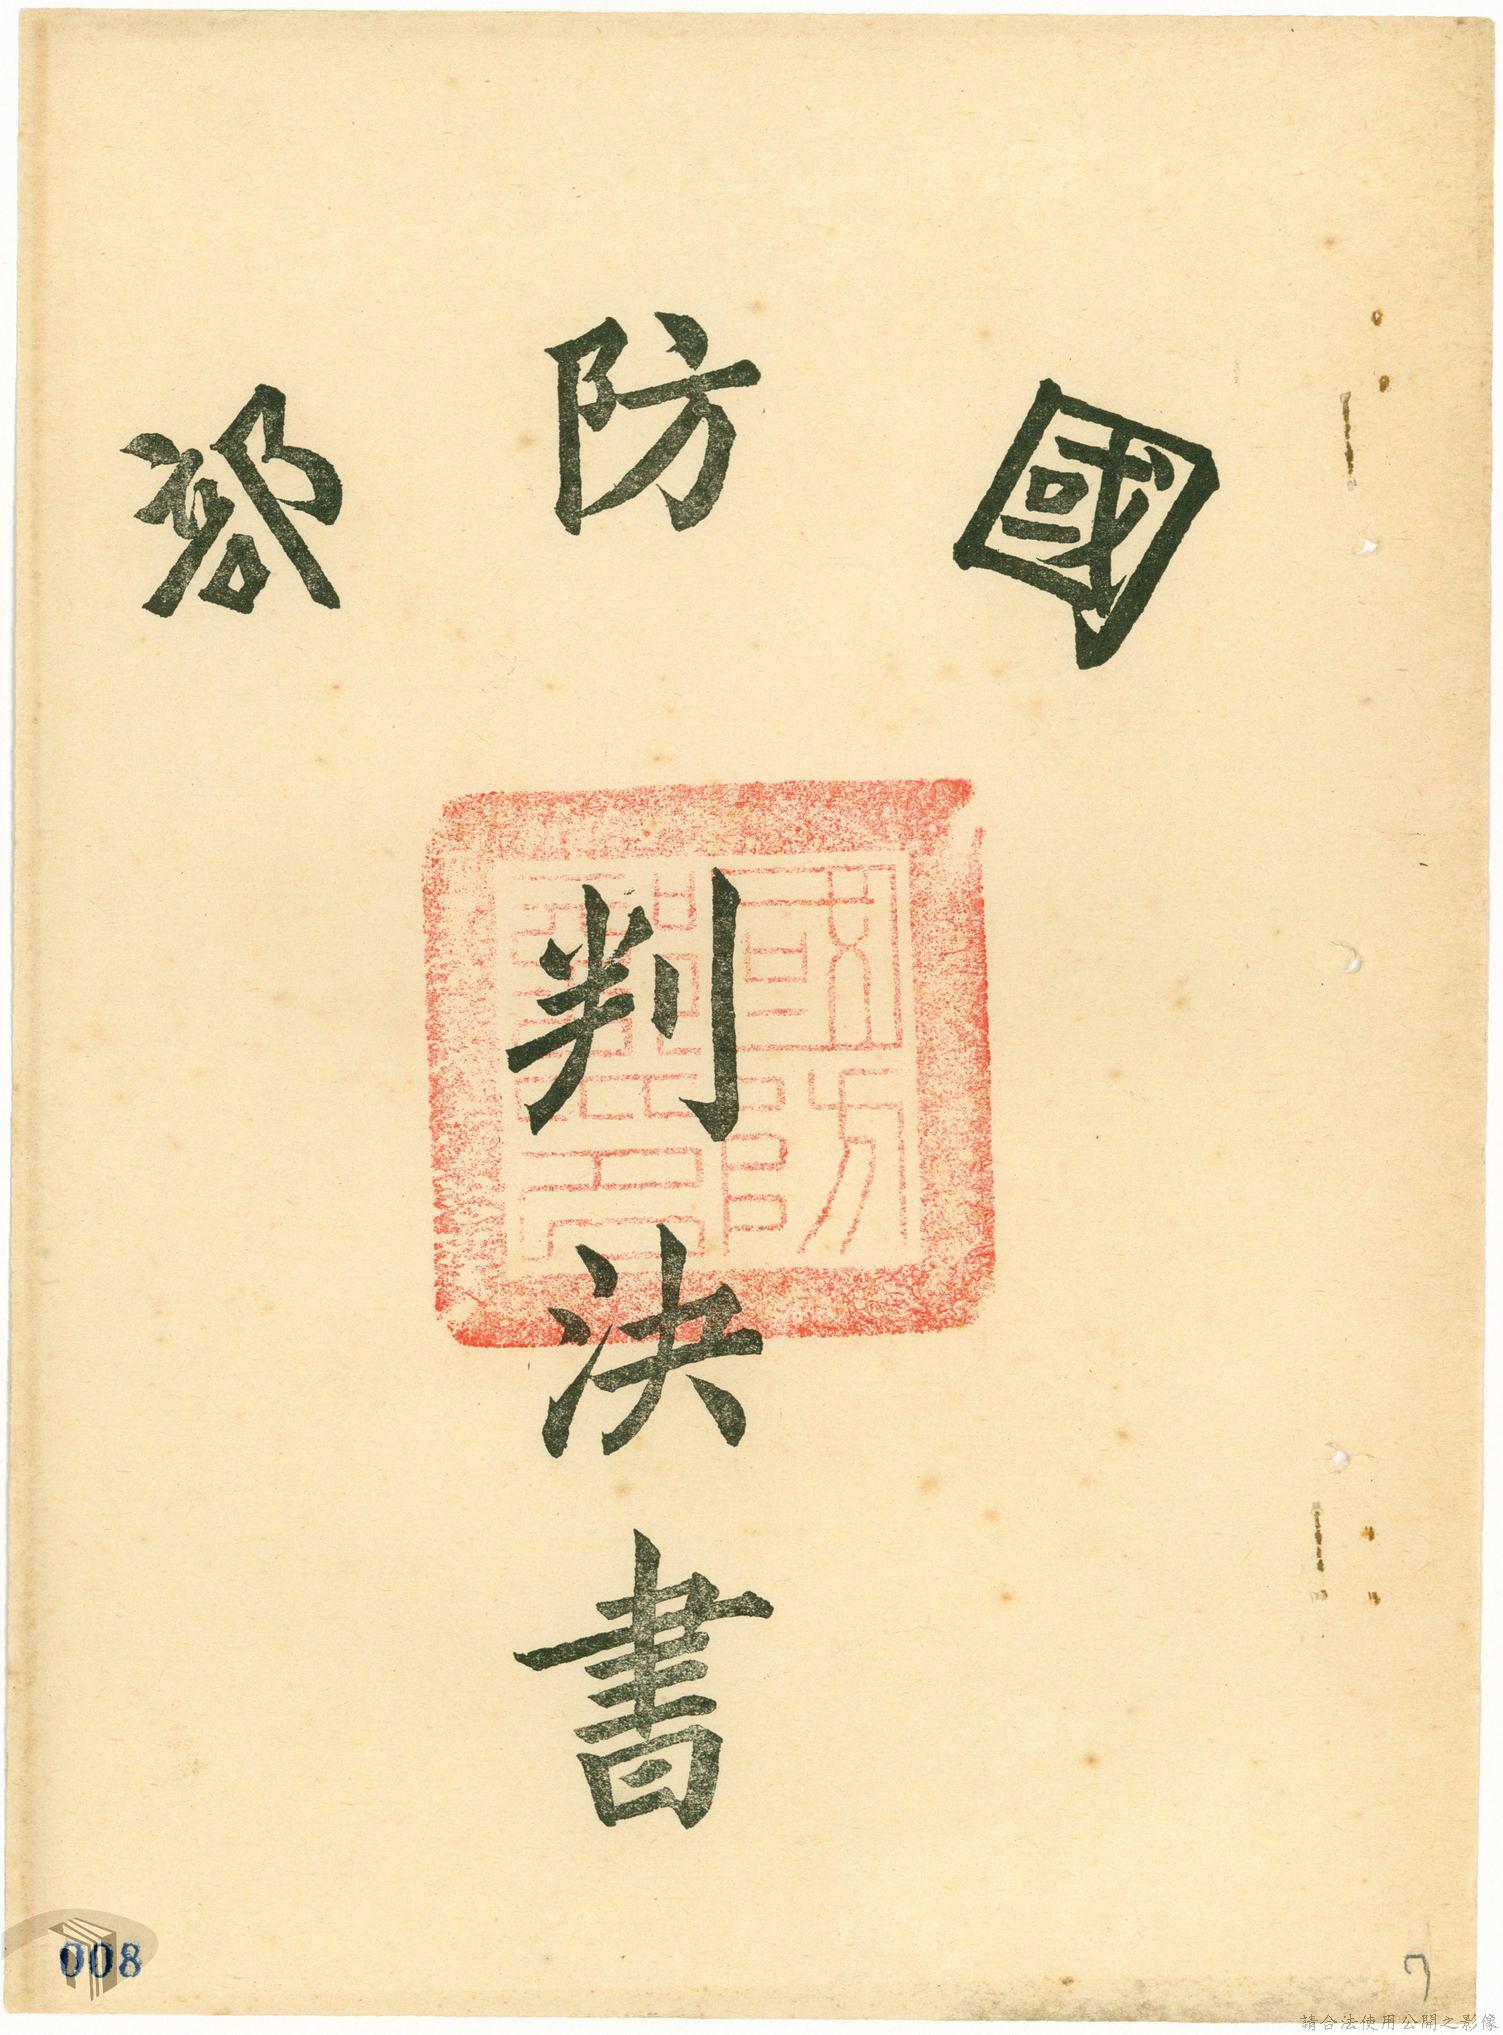 國防部
判決書
國防部印
008
7
請合法使用公開之影像